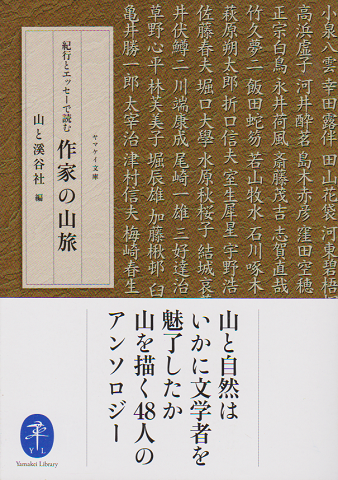 小泉八雲 幸田露伴 田山花袋 河東碧梧
高浜虚子 河井酔茗 島木赤彦 窪田空穂
正宗白鳥 永井荷風 斎藤茂吉 志賀直哉
竹久夢二 飯田蛇笏 若山牧水 石川啄木
萩原朔太郎 折口信夫 室生犀星 宇野浩
佐藤春夫 堀口大學 水原秋桜子 結城哀
井伏鱒二 川端康成 尾崎一雄 三好達治
草野心平 林芙美子 堀辰雄 加藤楸邨 臼
亀井勝一郎 太宰治 津村信夫 梅崎春生
ヤマケイ文庫
作家の山旅
紀行とエッセーで読む
山と溪谷社 編
山と自然は
いかに文学者を
魅了したか
山を描く48人の
アンソロジー
Y L
Yamakei Library